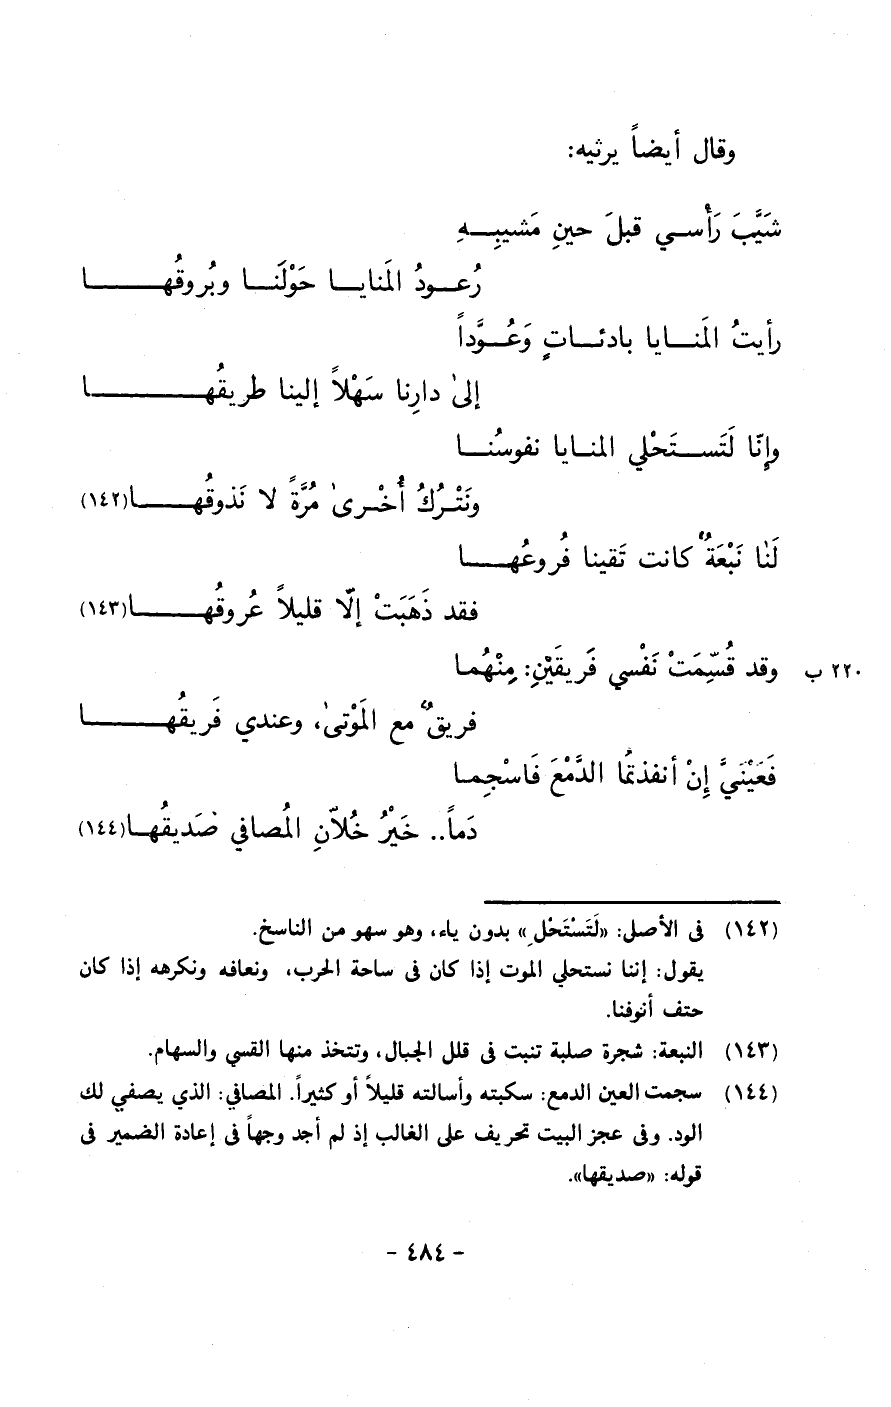 وقال أيضاً يرثيه:
شَيَّبَ رَأْسي قبلَ حينِ مَشيبِهِ
رُعودُ المَنايا حَوْلَنا وبُروقُها
رأيتُ المَنايا بادئاتٍ وَعُوَّداً
إلىٰ دارِنا سَهْلاً إلينا طريقُها
وإنّا لَتَستَحْلي المنايا نفوسُنا
ونَتْرُكُ أُخْرىٰ مُرَّةً لا نَذوقُها(١٤٢)
لَنٰا نَبْعَةٌ كانت تَقينا فُروعُها
فقد ذَهَبَتْ إلّا قليلاً عُروقُها(١٤٣)
٢٢٠ ب وقد قُسِّمَتْ نَفْسي فَريقَيْنِ: مِنْهُما
فريقٌ مع المَوْتىٰ، وعندي فَريقُها
فَعَيْنَيَّ إنْ أنفذتُما الدَّمْعَ فَاسْجِما
دَماً.. خَيْرُ خُلاّنِ المُصافي صَديقُها(١٤٤)
(١٤٢) فى الأصلى: «لَتَسْتَحْلِ» بدون ياء، وهو سهو من الناسخ.
يقول: إننا نستحلي الموت إذا كان فى ساحة الحرب، ونعافه ونكرهه إذا كان
حتف أنوفنا.
(١٤٣) النبعة: شجرة صلبة تنبت فى قلل الجبال، وتتخذ منها القسي والسهام.
(١٤٤) سجمت العين الدمع: سكبته وأسالته قليلاً أو كثيراً. المصافي: الذي يصفي لك
الود. وفى عجز البيت تحريف على الغالب إذ لم أجد وجهاً فى إعادة الضمير فى
قوله: «صديقها».
- ٤٨٤ -